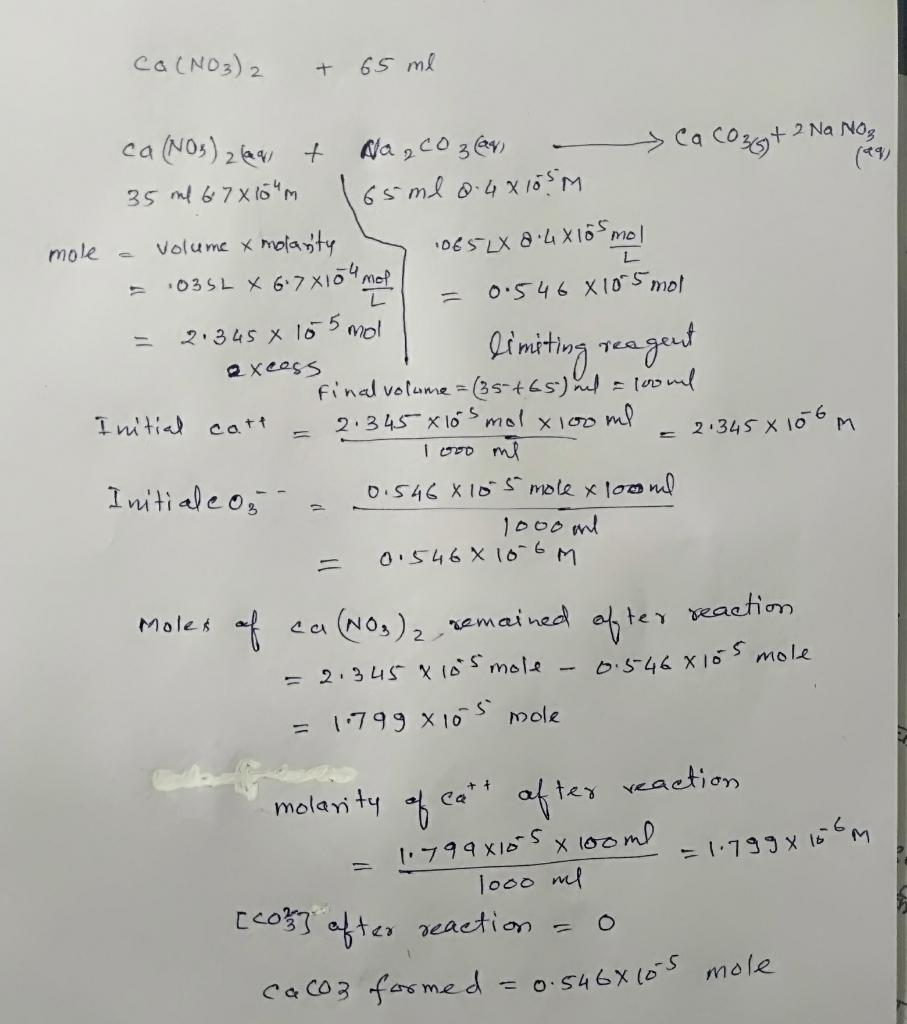 Ca(NO3)2 + 65 ml
Ca(NO3)2(aq) + Na2CO3(aq) → CaCO3(s) + 2NaNO3 (aq)
35 ml 6.7 x 10^-4 M 65 ml 8.4 x 10^-5 M
mole = volume x molarity .065L x 8.4 x 10^-5 mol/L
= .035L x 6.7 x 10^-4 mol/L = 0.546 x 10^-5 mol
= 2.345 x 10^-5 mol limiting reagent
excess
Final volume = (35+65) ml = 100 ml
Initial Ca++ = 2.345 x 10^-5 mol x 100 ml / 1000 ml = 2.345 x 10^-6 M
Initial CO3-- = 0.546 x 10^-5 mole x 100 ml / 1000 ml
= 0.546 x 10^-6 M
Moles of Ca(NO3)2 remained after reaction
= 2.345 x 10^-5 mole - 0.546 x 10^-5 mole
= 1.799 x 10^-5 mole
molarity of Ca++ after reaction
= 1.799 x 10^-5 x 100 ml / 1000 ml = 1.799 x 10^-6 M
[CO3^2-] after reaction = 0
CaCO3 formed = 0.546 x 10^-5 mole